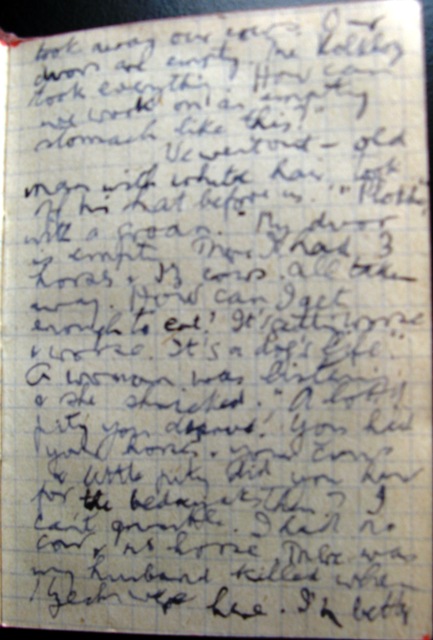 took away our cows. 
dvors are empty. The Kolkhoz
took everything. How can
we work on an empty
stomach like this?"
We went out - old
man with white hair took
off his hat before us.
with a groan. "My dvor
is empty. There I had 3
horses & cows all taken
away. How can I get
enough to eat? It's getting worse
& worse. It's a dog's life."
A woman was listening
& she shrieked. "A lot of
pity you deserve! You had
your horses & your cows
& little pity did you have
for the bedniaks then. I
can't grumble. I had no
cow, no horse. There was
my husband killed when
here. I'm better